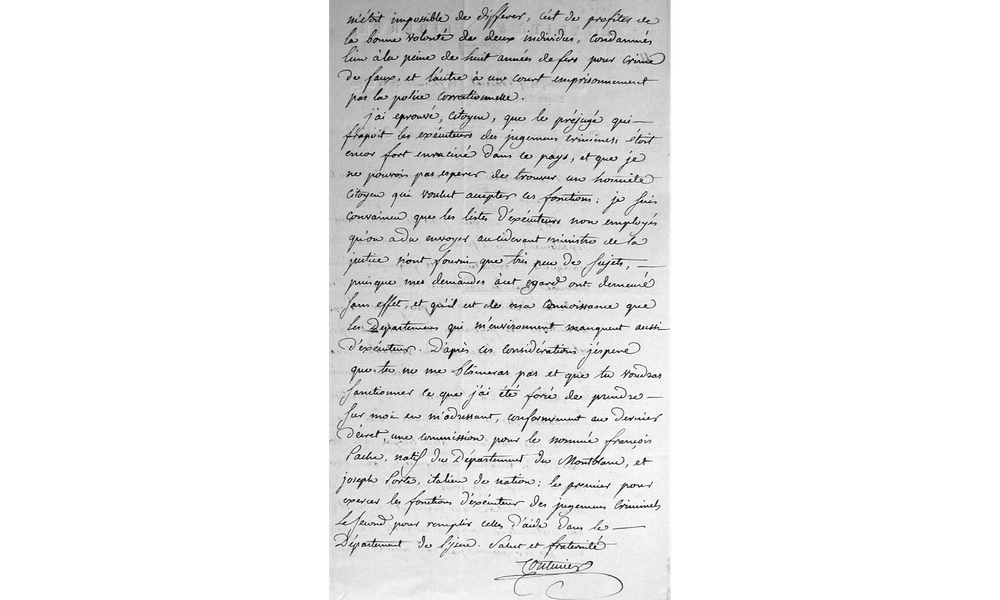 m'étoit impossible de différer, c'est de profiter de
la bonne volonté de deux individus, condamnés
l'un à la peine de huit années de fers pour crime
de faux, et l'autre à un court emprisonnement
par la police correctionnelle.
j'ai eprouvé, Citoyen, que le préjugé qui —
frapoit les exécuteurs des jugemens criminels, étoit
encor fort enraciné dans ce pays, et que je
ne pouvois pas esperer de trouver un honnête
Citoyen qui voulut accepter ces fonctions; je suis
convaincu que les listes d'exécuteurs non employés
qu'on a du envoyer au cidevant ministre de la
justice n'ont fourni que très peu de sujets, —
puisque mes demandes à cet egard ont demeuré
sans effet, et qu'il est de ma connoissance que
les Departemens qui m'environnent manquent aussi
d'exécuteur. D'après ces considérations j'espere
que tu ne me blâmeras pas et que tu voudras
sanctionner ce que j'ai été forcé de prendre —
sur moi en m'adressant, conformément au dernier
décret, une commission pour le nommé françois
Pache, natif du Département du Montblanc, et
joseph Porte, italien de nation; le premier pour
exercer les fonctions d'exécuteur des jugemens Criminels
le second pour remplir celles d'aide dans le —
Département de l'jzere. Salut et fraternité